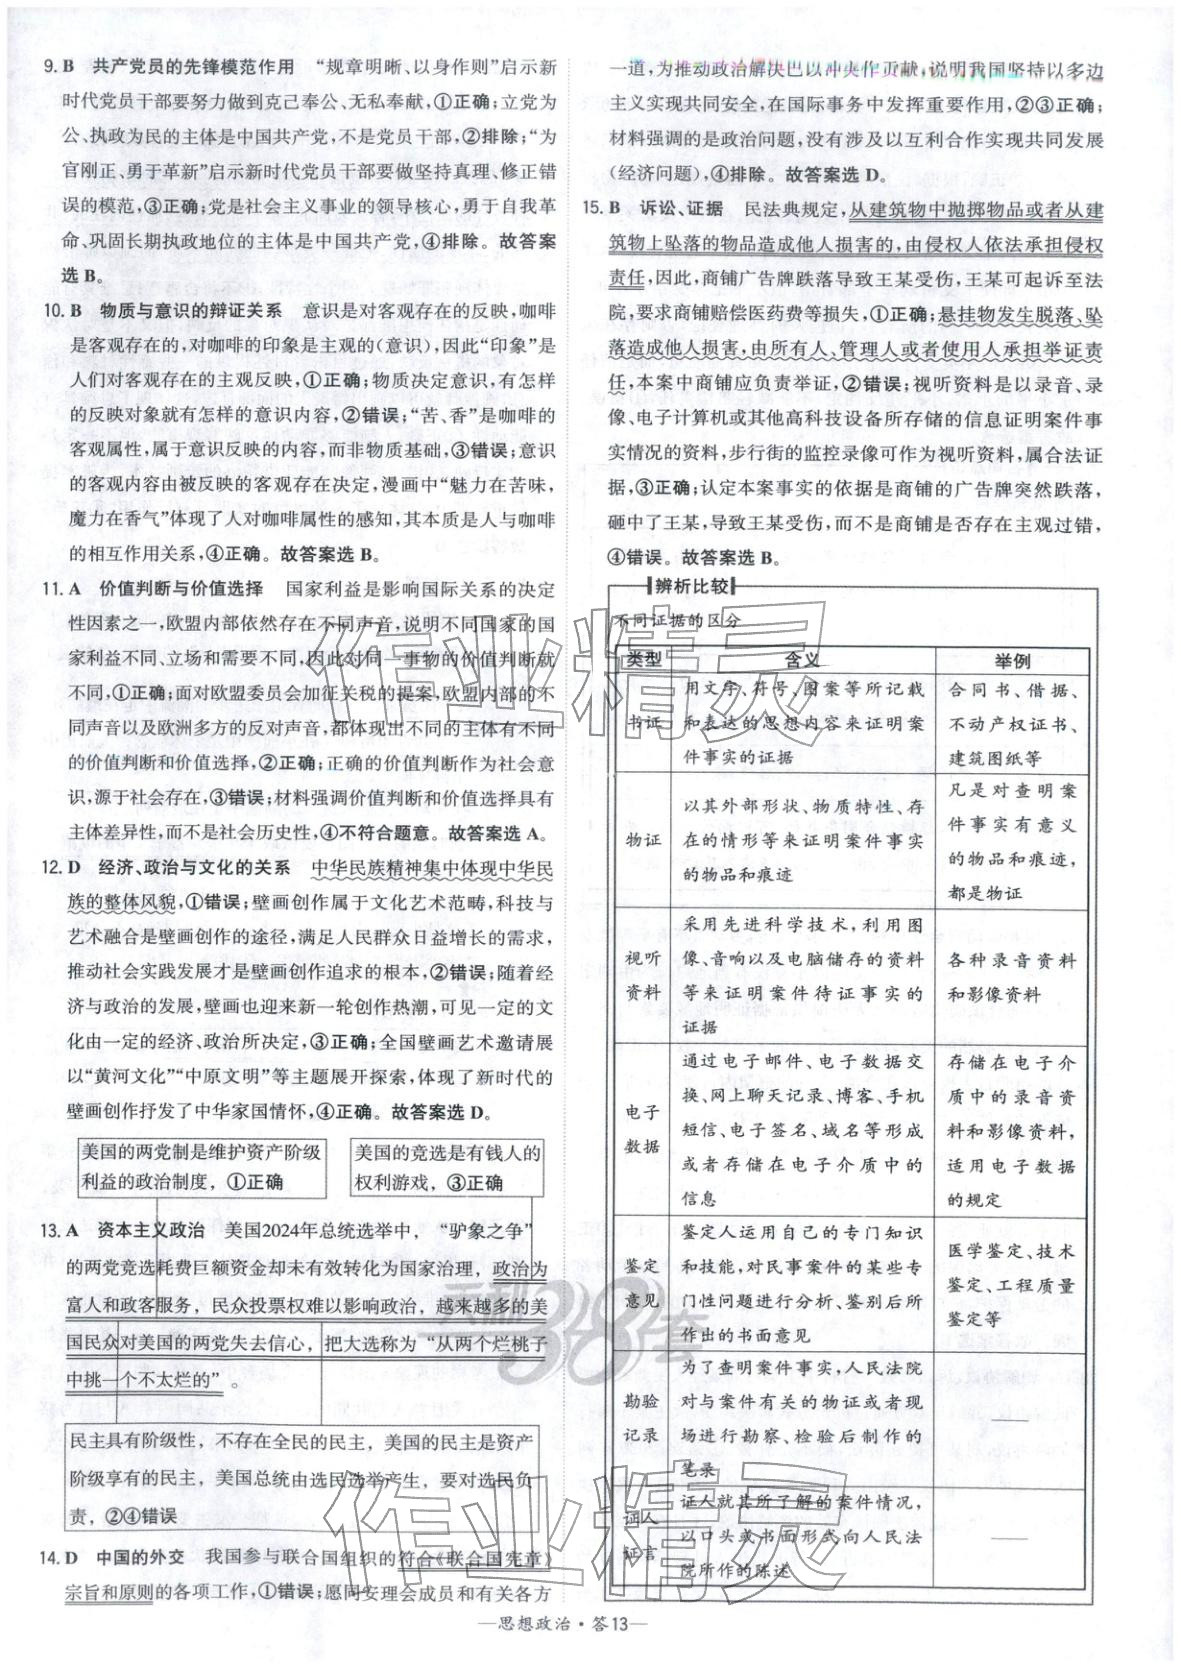 9. B 共产党员的先锋模范作用 “规章明晰、以身作则”启示新
时代党员干部要努力做到克己奉公、无私奉献,①正确;立党为
公、执政为民的主体是中国共产党,不是党员干部,②排除;“为
官刚正、勇于革新”启示新时代党员干部要做坚持真理、修正错
误的模范,③正确;党是社会主义事业的领导核心,勇于自我革
命、巩固长期执政地位的主体是中国共产党,④排除。故答案
选 B。
10. B 物质与意识的辩证关系 意识是对客观存在的反映,咖啡
是客观存在的,对咖啡的印象是主观的(意识),因此“印象”是
人们对客观存在的主观反映,①正确;物质决定意识,有怎样
的反映对象就有怎样的意识内容,②错误;“苦、香”是咖啡的
客观属性,属于意识反映的内容,而非物质基础,③错误;意识
的客观内容由被反映的客观存在决定,漫画中“魅力在苦味,
魔力在香气”体现了人对咖啡属性的感知,其本质是人与咖啡
的相互作用关系,④正确。故答案选 B。
11. A 价值判断与价值选择 国家利益是影响国际关系的决定
性因素之一,欧盟内部依然存在不同声音,说明不同国家的国
家利益不同、立场和需要不同,因此对同一事物的价值判断就
不同,①正确;面对欧盟委员会加征关税的提案,欧盟内部的不
同声音以及欧洲多方的反对声音,都体现出不同的主体有不同
的价值判断和价值选择,②正确;正确的价值判断作为社会意
识,源于社会存在,③错误;材料强调价值判断和价值选择具有
主体差异性,而不是社会历史性,④不符合题意。故答案选 A。
12. D 经济、政治与文化的关系 中华民族精神集中体现中华民
族的整体风貌,①错误;壁画创作属于文化艺术范畴,科技与
艺术融合是壁画创作的途径,满足人民群众日益增长的需求,
推动社会实践发展才是壁画创作追求的根本,②错误;随着经
济与政治的发展,壁画也迎来新一轮创作热潮,可见一定的文
化由一定的经济、政治所决定,③正确;全国壁画艺术邀请展
以“黄河文化”“中原文明”等主题展开探索,体现了新时代的
壁画创作抒发了中华家国情怀,④正确。故答案选 D。
美国的两党制是维护资产阶级
利益的政治制度,①正确
美国的竞选是有钱人的
权利游戏,③正确
13. A 资本主义政治 美国2024年总统选举中,“驴象之争”
的两党竞选耗费巨额资金却未有效转化为国家治理,政治为
富人和政客服务,民众投票权难以影响政治,越来越多的美
国民众对美国的两党失去信心,把大选称为“从两个烂桃子
中挑一个不太烂的”。
民主具有阶级性,不存在全民的民主,美国的民主是资产
阶级享有的民主,美国总统由选民选举产生,要对选民负
责,②④错误
14. D 中国的外交 我国参与联合国组织的符合《联合国宪章》
宗旨和原则的各项工作,①错误;愿同安理会成员和有关各方
一道,为推动政治解决巴以冲突作贡献,说明我国坚持以多边
主义实现共同安全,在国际事务中发挥重要作用,②③正确;
材料强调的是政治问题,没有涉及以互利合作实现共同发展
(经济问题),④排除。故答案选 D。
15. B 诉讼、证据 民法典规定,从建筑物中抛掷物品或者从建
筑物上坠落的物品造成他人损害的,由侵权人依法承担侵权
责任,因此,商铺广告牌跌落导致王某受伤,王某可起诉至法
院,要求商铺赔偿医药费等损失,①正确;悬挂物发生脱落、坠
落造成他人损害,由所有人、管理人或者使用人承担举证责
任,本案中商铺应负责举证,②错误;视听资料是以录音、录
像、电子计算机或其他高科技设备所存储的信息证明案件事
实情况的资料,步行街的监控录像可作为视听资料,属合法证
据,③正确;认定本案事实的依据是商铺的广告牌突然跌落,
砸中了王某,导致王某受伤,而不是商铺是否存在主观过错,
④错误。故答案选 B。
辨析比较
不同证据的区分
类型 含义 举例
书证 用文字、符号、图案等所记载
和表达的思想内容来证明案
件事实的证据
合同书、借据、
不动产权证书、
建筑图纸等
物证 以其外部形状、物质特性、存
在的情形等来证明案件事实
的物品和痕迹
凡是对查明案
件事实有意义
的物品和痕迹,
都是物证
视听
资料
采用先进科学技术,利用图
像、音响以及电脑储存的资料
等来证明案件待证事实的
证据
各种录音资料
和影像资料
电子
数据
通过电子邮件、电子数据交
换、网上聊天记录、博客、手机
短信、电子签名、域名等形成
或者存储在电子介质中的
信息
存储在电子介
质中的录音资
料和影像资料,
适用电子数据
的规定
鉴定
意见
鉴定人运用自己的专门知识
和技能,对民事案件的某些专
门性问题进行分析、鉴别后所
作出的书面意见
医学鉴定、技术
鉴定、工程质量
鉴定等
勘验
记录
为了查明案件事实,人民法院
对与案件有关的物证或者现
场进行勘察、检验后制作的
笔录
证人
证言
证人就其所了解的案件情况,
以口头或书面形式向人民法
院所作的陈述
——
作业精灵
天利38套
作业精灵
—思想政治·答13—